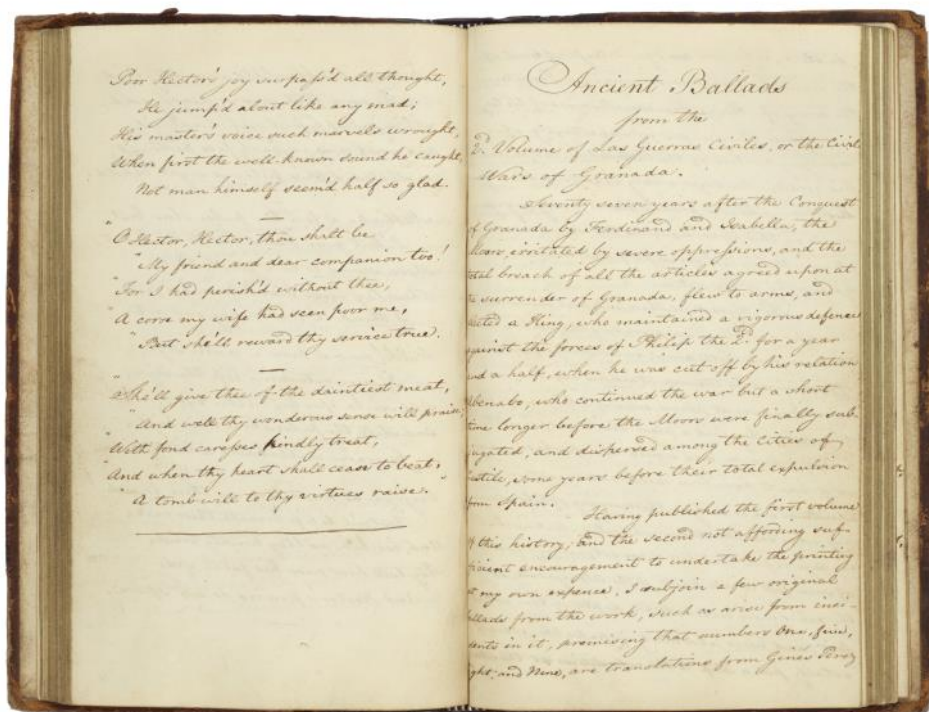 Poor Hector's joy surpass'd all thought,
He jump'd about like any mad;
His master's voice such marvels wrought,
When first the well-known sound he caught,
Not man himself seem'd half so glad.
"O Hector, Hector, thou shalt be
"My friend and dear companion too!
"For I had perish'd without thee,
"A corse my wife had seen poor me,
"But she'll reward thy service true.
"She'll give thee of the daintiest meat,
"And well thy wonderous sense will praise,
"With fond caresses kindly treat,
"And when thy heart shall cease to beat,
"A tomb will to thy virtues raise."
Ancient Ballads
from the
2d. Volume of Las Guerras Civiles, or the Civil
Wars of Granada.
Seventy seven years after the Conquest
of Granada by Ferdinand and Isabella, the
Moors irritated by severe oppressions, and the
total breach of all the articles agreed upon at
surrender of Granada, flew to arms, and
a King, who maintained a vigorous defence
against the forces of Philip the 2d. for a year
and a half, when he was cut off by his relation
who continued the war but a short
time longer before the Moors were finally sub-
jugated, and dispersed among the Cities of
Castile, some years before their total expulsion
from Spain.
Having published the first volume
of this history, and the second not affording suf-
ficient encouragement to undertake the printing
at my own expence, I subjoin a few original
ballads from the work, such as arise from inci-
dents in it, promising that numbers One, five,
Eight, and Nine, are translations from Ginés Perez